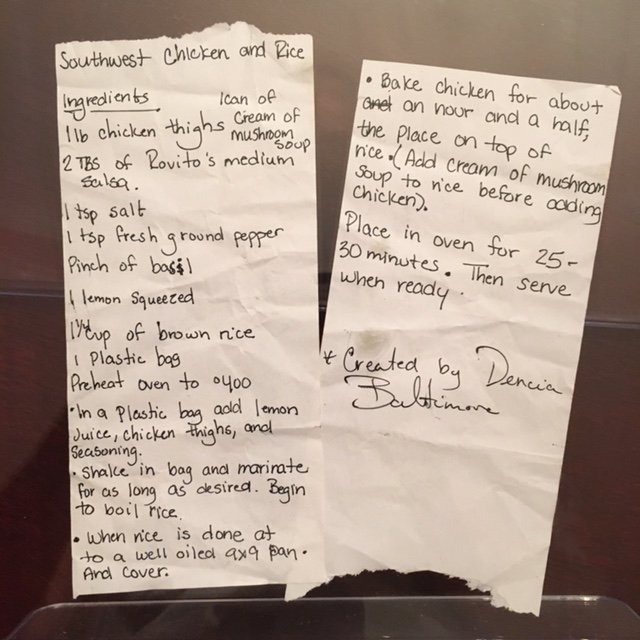 Southwest Chicken and Rice
Ingredients
1can of
Cream of
mushroom
soup
1lb chicken thighs
2 TBS of Rovito's medium
Salsa.
1 tsp salt
1 tsp fresh ground pepper
Pinch of basil
1 lemon squeezed
1¼ cup of brown rice
1 Plastic bag
Preheat oven to °400
• In a Plastic bag add lemon
Juice, chicken thighs, and
seasoning.
• Shake in bag and marinate
for as long as desired. Begin
to boil rice.
• When rice is done at
to a well oiled 9x9 pan.
And cover.
• Bake chicken for about
and an hour and a half,
the Place on top of
rice. (Add cream of mushroom
soup to rice before adding
chicken).
Place in oven for 25-
30 minutes. Then serve
when ready.
* Created by Dencia
Baltimore